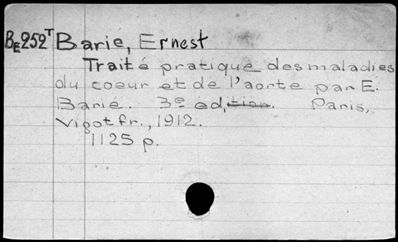 BE252T Barie, Ernest
Traité pratique des maladies
du coeur et de l'aorte par E.
Barié. 3e edition. Paris,
Vigot fr., 1912.
1125 p.